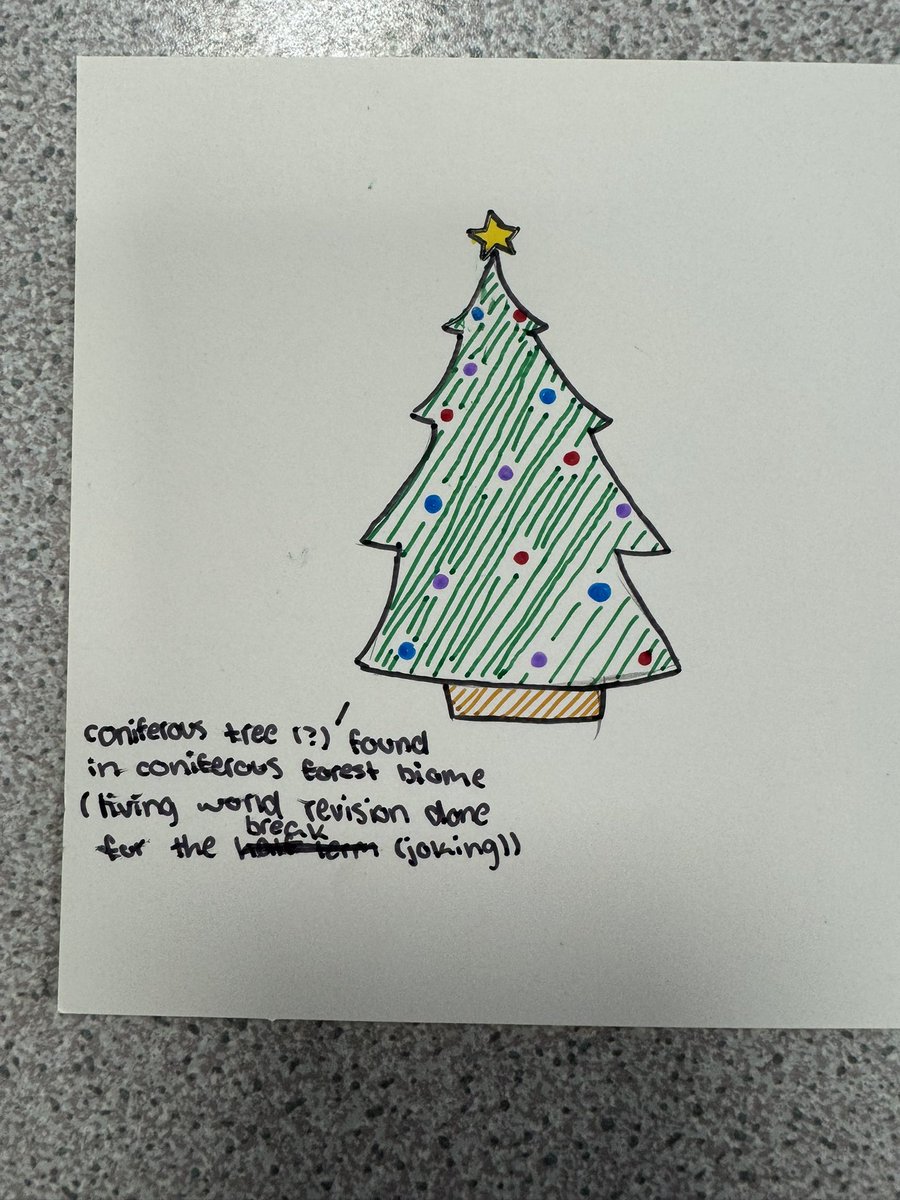 coniferous tree (?) found
in coniferous forest biome
(living world revision done
break
for the half term (joking))